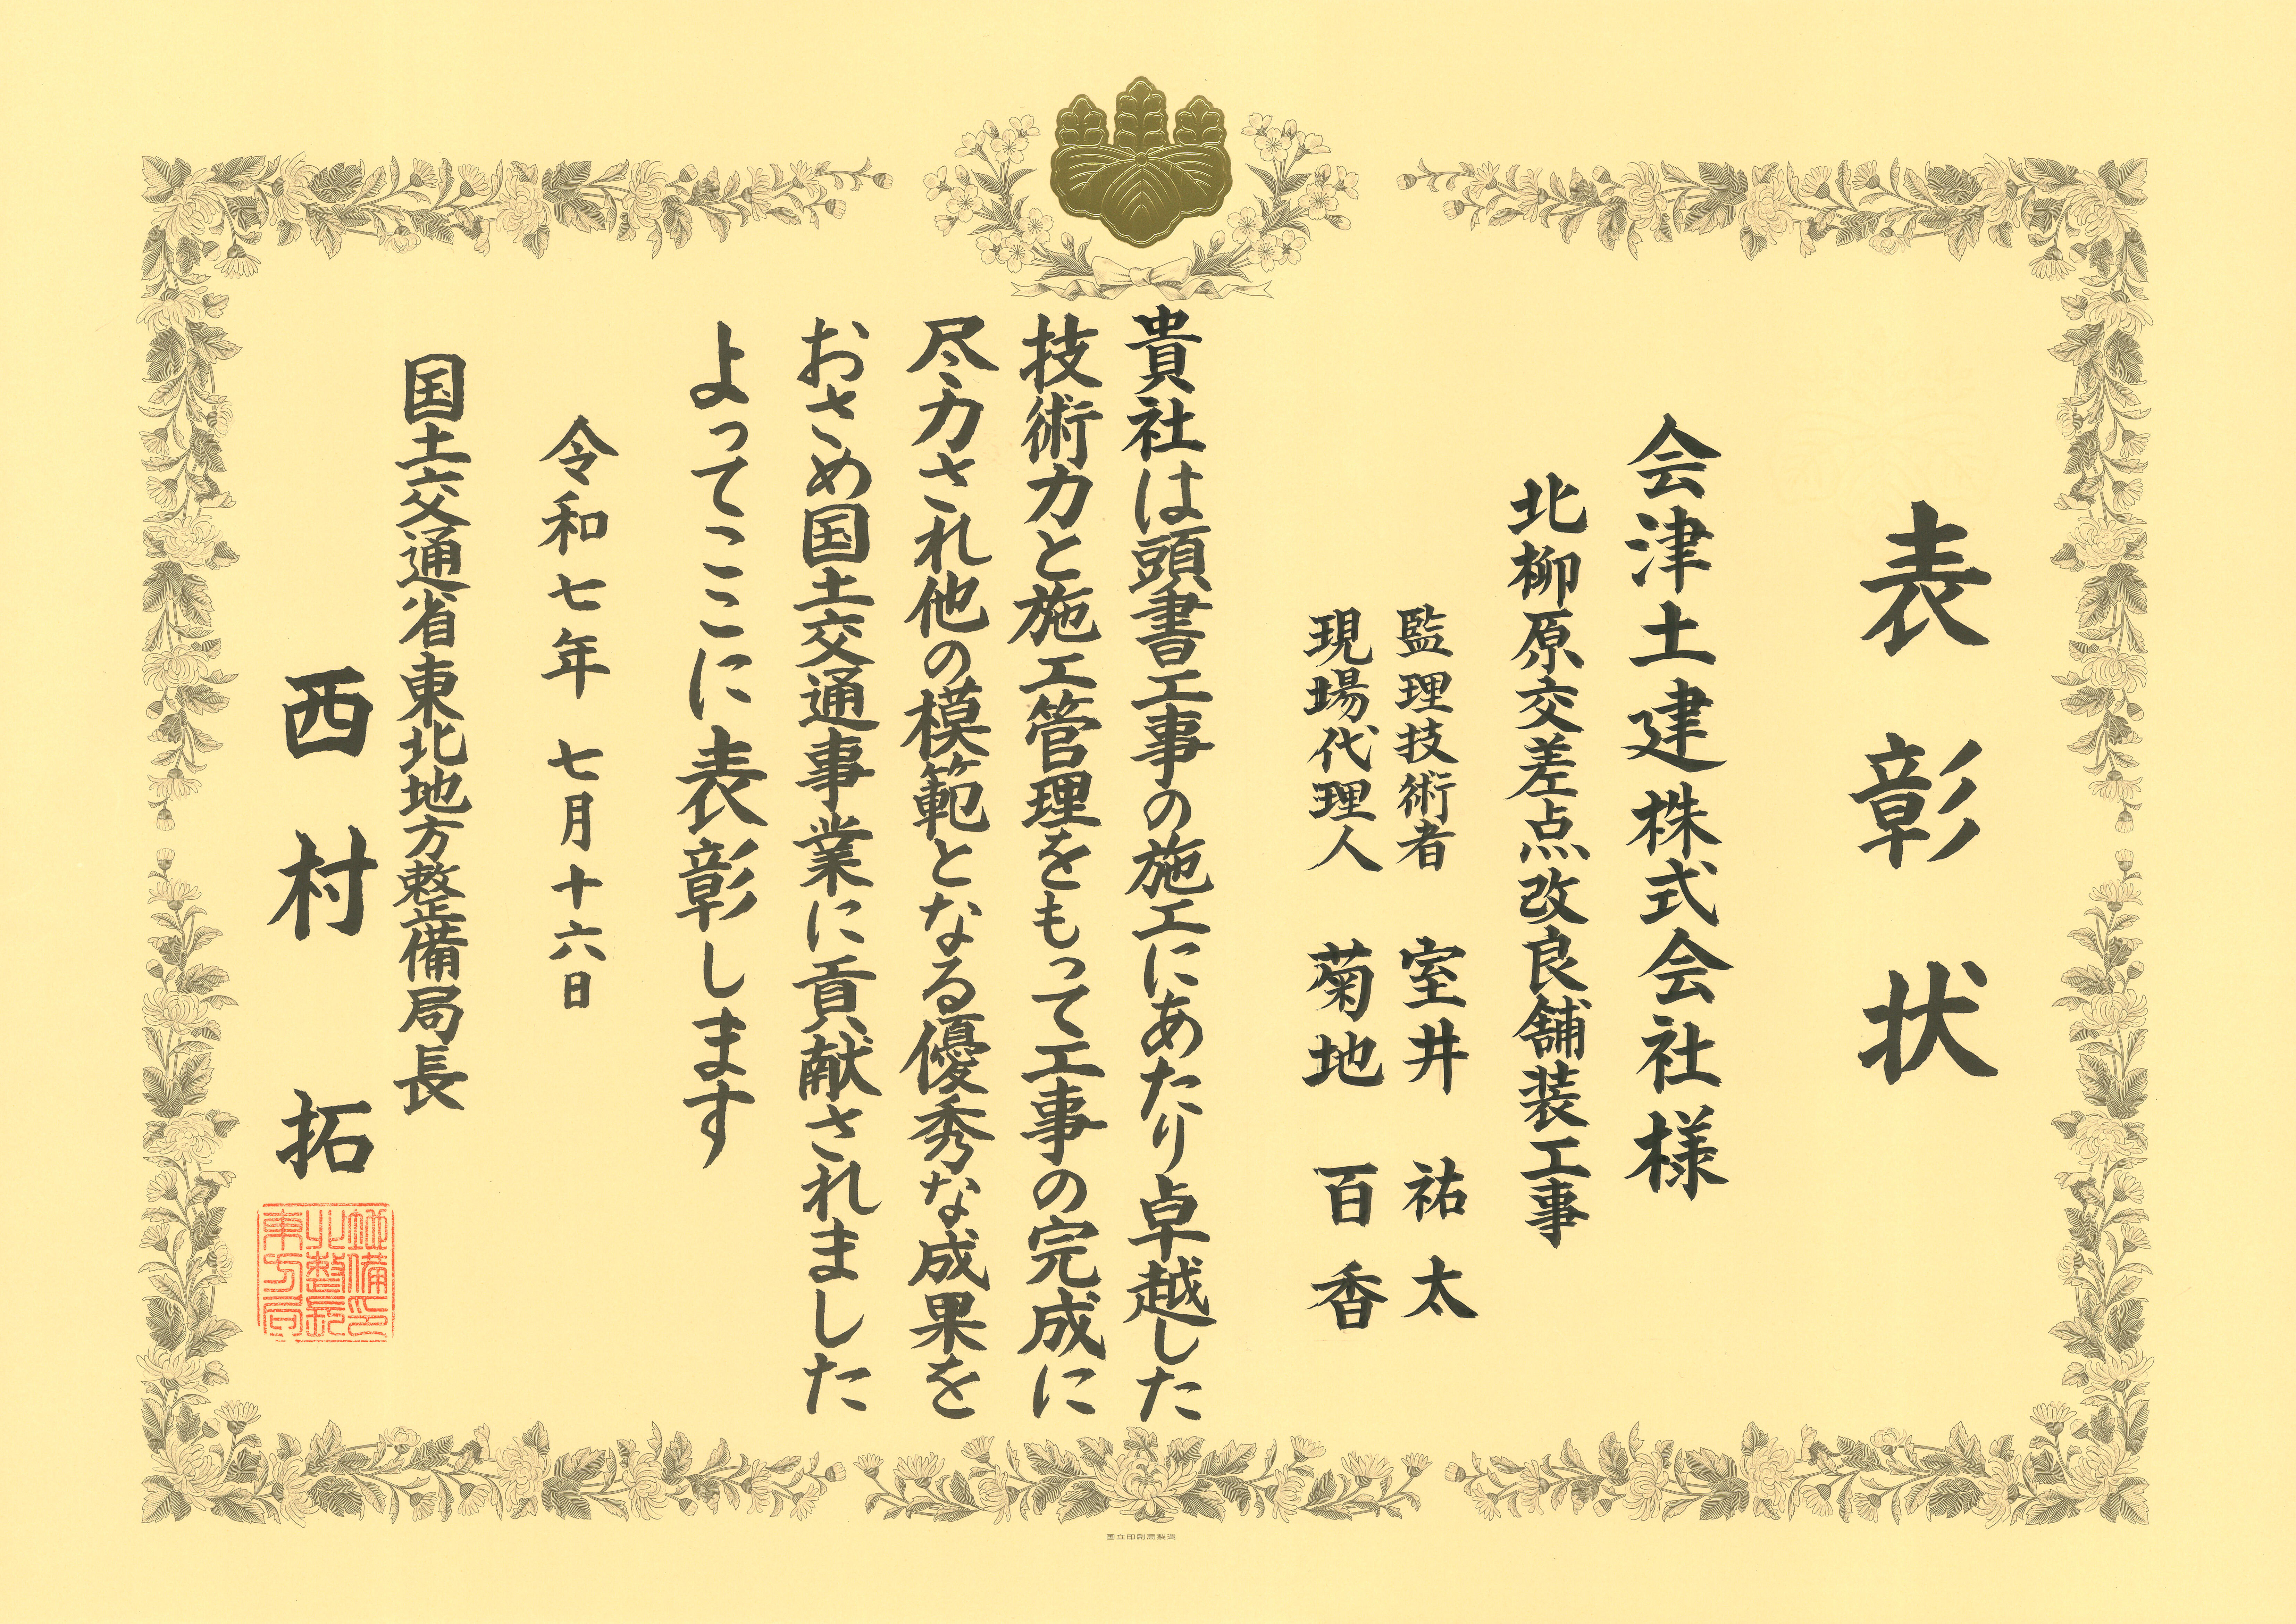 表彰状
会津土建株式会社様
北柳原交差点改良舗装工事
監理技術者 室井祐太
現場代理人 菊地百香
貴社は頭書工事の施工にあたり卓越した
技術力と施工管理をもって工事の完成に
尽力され他の模範となる優秀な成果を
おさめ国土交通事業に貢献されました
よってここに表彰します
令和七年 七月十六日
国土交通省東北地方整備局長
西村 拓
国立印刷局製造